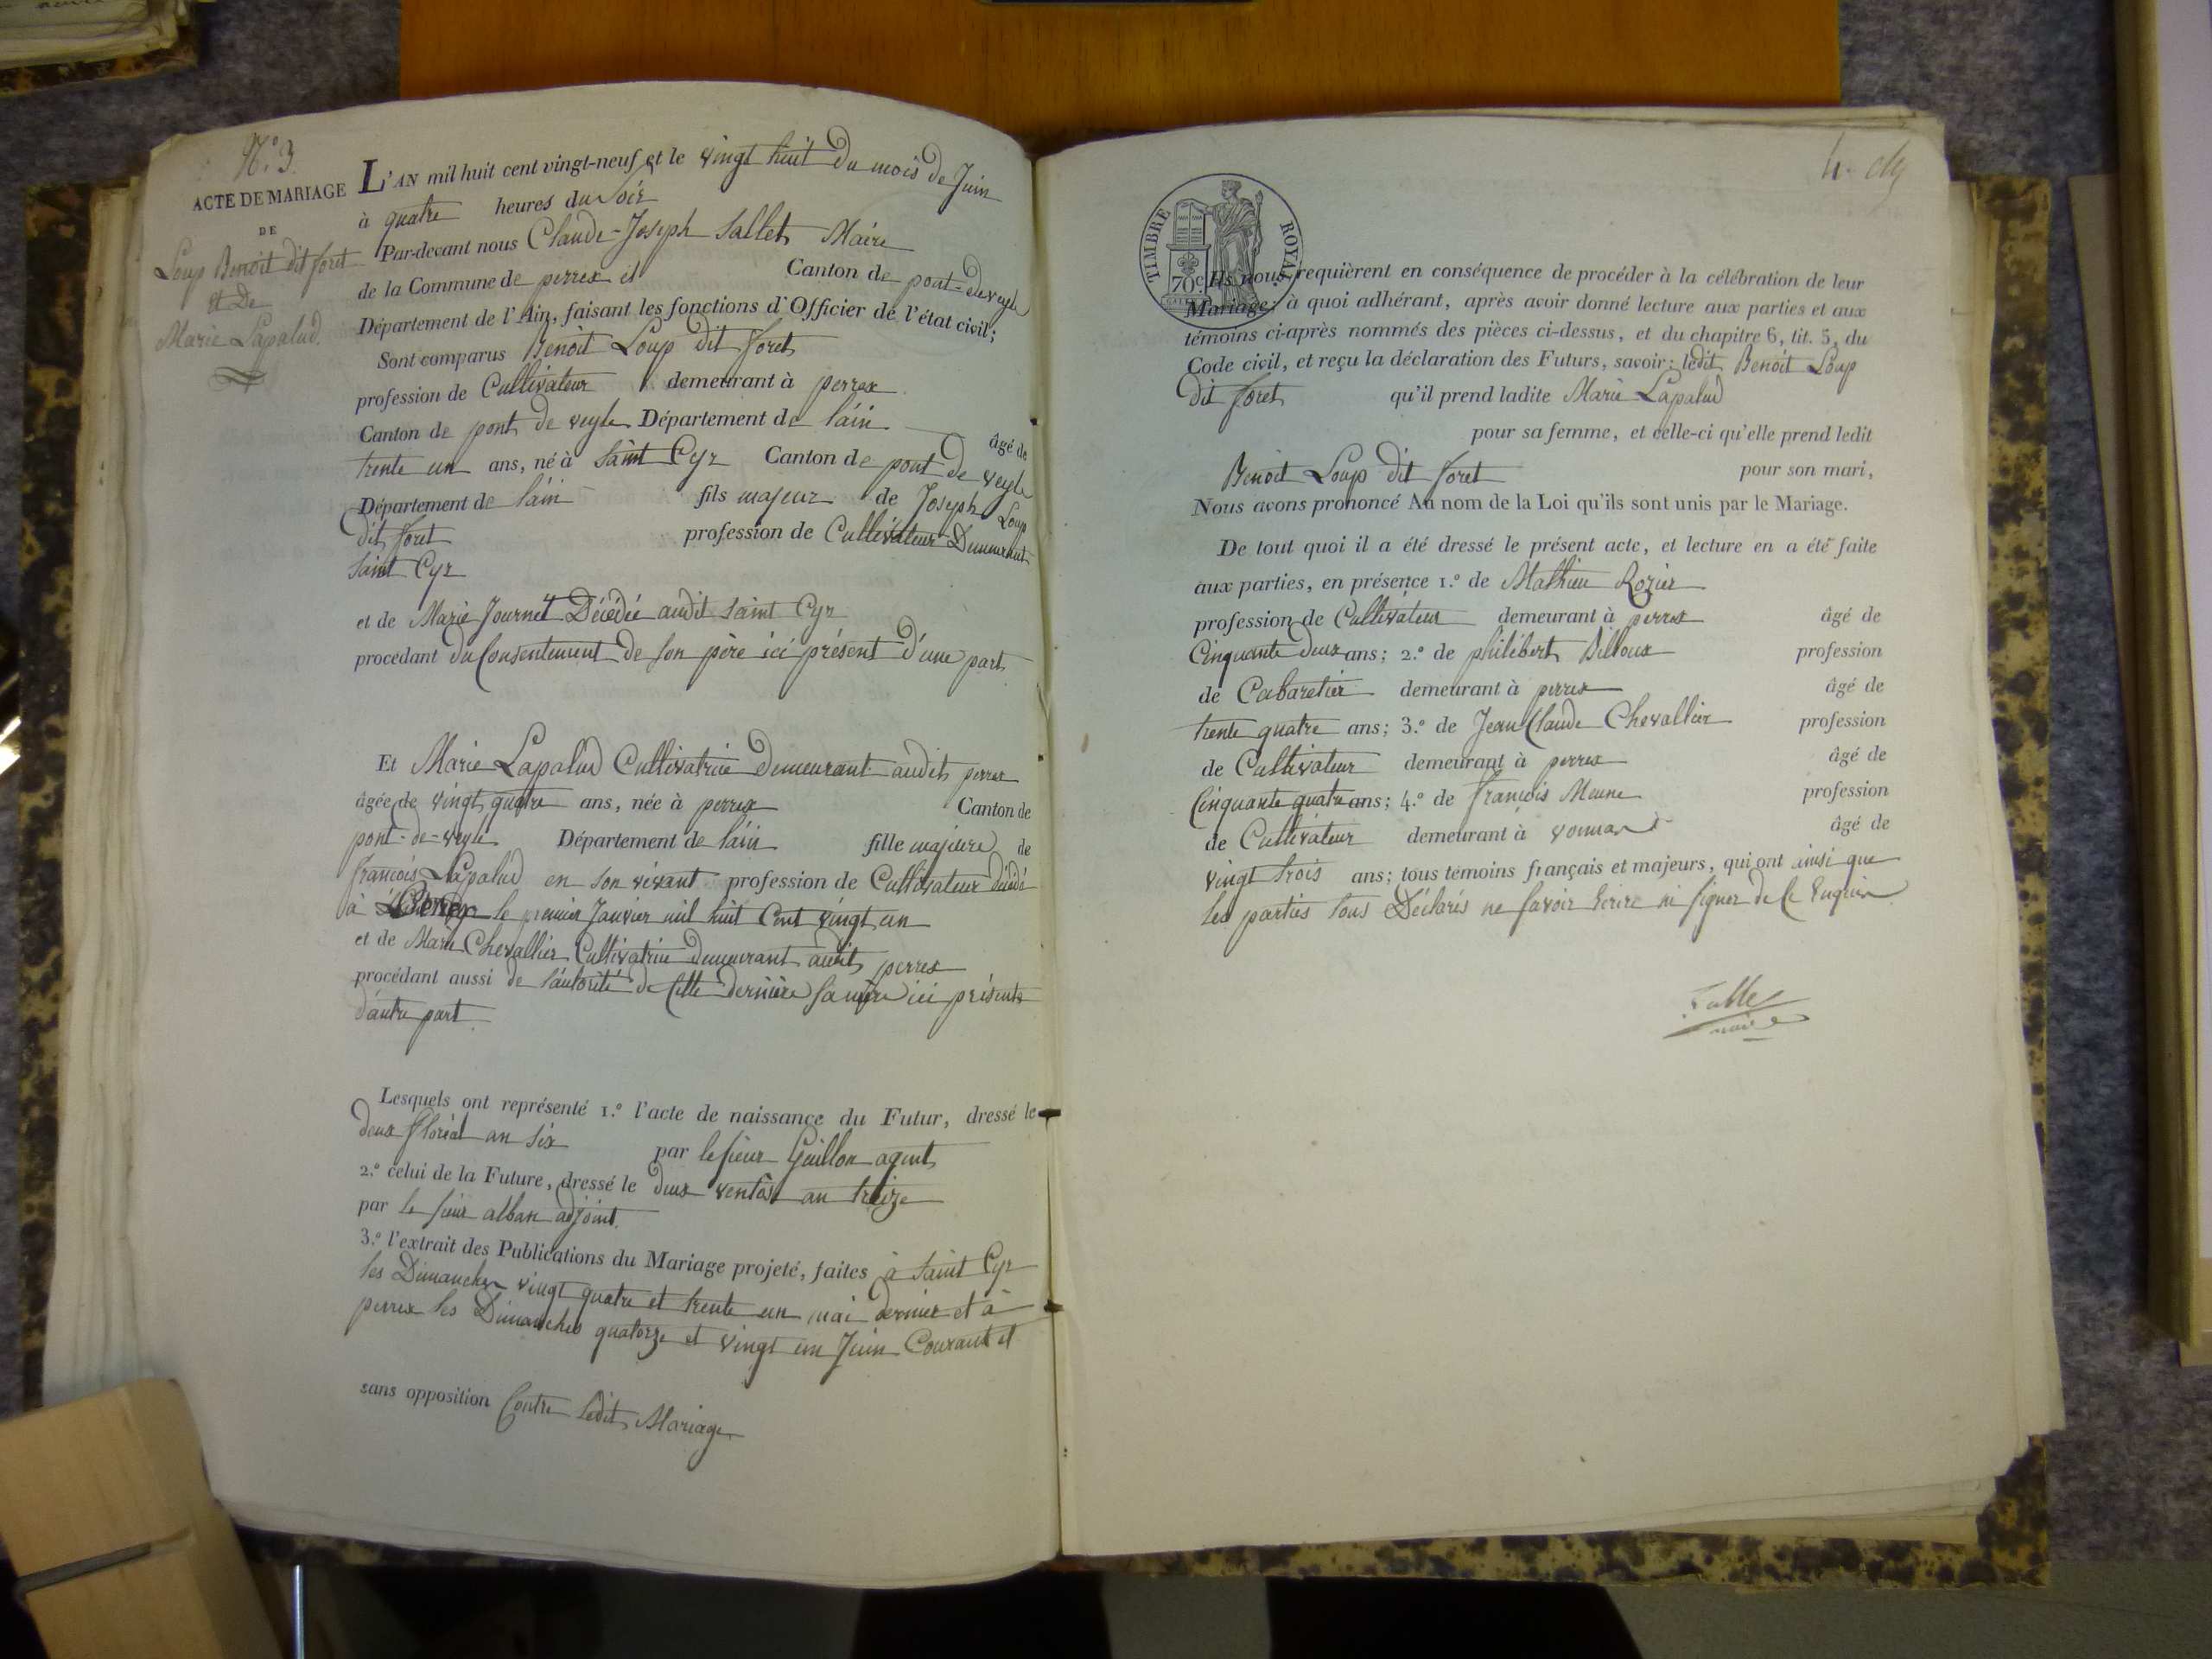 N.° 3.
ACTE DE MARIAGE
DE
Loup Benoit dit foret
et De
Marie Lapalud.
L'AN mil huit cent vingt-neuf et le vingt huit du mois de Juin
à quatre heures du Soir
Par-devant nous Claude-Joseph Sallet Maire
de la Commune de perrex Canton de pont-de-veyle
Département de l'Ain, faisant les fonctions d'Officier de l'état civil;
Sont comparus Benoit Loup dit foret
profession de Cultivateur demeurant à perrex
Canton de pont de veyle Département de l'ain âgé de
trente un ans, né à Saint Cyr Canton de pont de veyle
Département de l'ain fils majeur de Joseph Loup
dit foret profession de Cultivateur Demeurant
Saint Cyr
et de Marie Journet Décédée audit Saint Cyr
procédant du Consentement de son père ici présent d'une part
Et Marie Lapalud Cultivatrice Demeurant audit perrex
âgée de vingt quatre ans, née à perrex Canton de
pont-de-veyle Département de l'ain fille majeure de
françois Lapalud en son vivant profession de Cultivateur décédé
à le premier Janvier mil huit Cent vingt un
et de Marie Chevallier Cultivatrice Demeurant audit perrex
procédant aussi de l'autorité de Cette dernière sa mère ici présente
d'autre part
Lesquels ont représenté 1.° l'acte de naissance du Futur, dressé le
deux floréal an six par le sieur Guillon agent
2.° celui de la Future, dressé le deux ventôse an treize
par le sieur alban adjoint.
3.° l'extrait des Publications du Mariage projeté, faites à Saint Cyr
les Dimanches vingt quatre et trente un mai dernier et à
perrex les Dimanches quatorze et vingt un Juin Courant et
sans opposition Contre ledit Mariage
4.
TIMBRE ROYAL
70c
Ils nous requièrent en conséquence de procéder à la célébration de leur
Mariage; à quoi adhérant, après avoir donné lecture aux parties et aux
témoins ci-après nommés des pièces ci-dessus, et du chapitre 6, tit. 5, du
Code civil, et reçu la déclaration des Futurs, savoir: ledit Benoit Loup
dit foret qu'il prend ladite Marie Lapalud
pour sa femme, et celle-ci qu'elle prend ledit
Benoit Loup dit foret pour son mari,
Nous avons prononcé Au nom de la Loi qu'ils sont unis par le Mariage.
De tout quoi il a été dressé le présent acte, et lecture en a été faite
aux parties, en présence 1.° de Mathieu Rozier
profession de Cultivateur demeurant à perrex âgé de
Cinquante deux ans; 2.° de philibert Billoux profession
de Cabaretier demeurant à perrex âgé de
trente quatre ans; 3.° de Jean Claude Chevallier profession
de Cultivateur demeurant à perrex âgé de
Cinquante quatre ans; 4.° de françois Meune profession
de Cultivateur demeurant à vonnas âgé de
vingt trois ans; tous témoins français et majeurs, qui ont ainsi que
les parties tous Déclarés ne savoir Ecrire ni signer de Ce Enquis
Sallet
maire